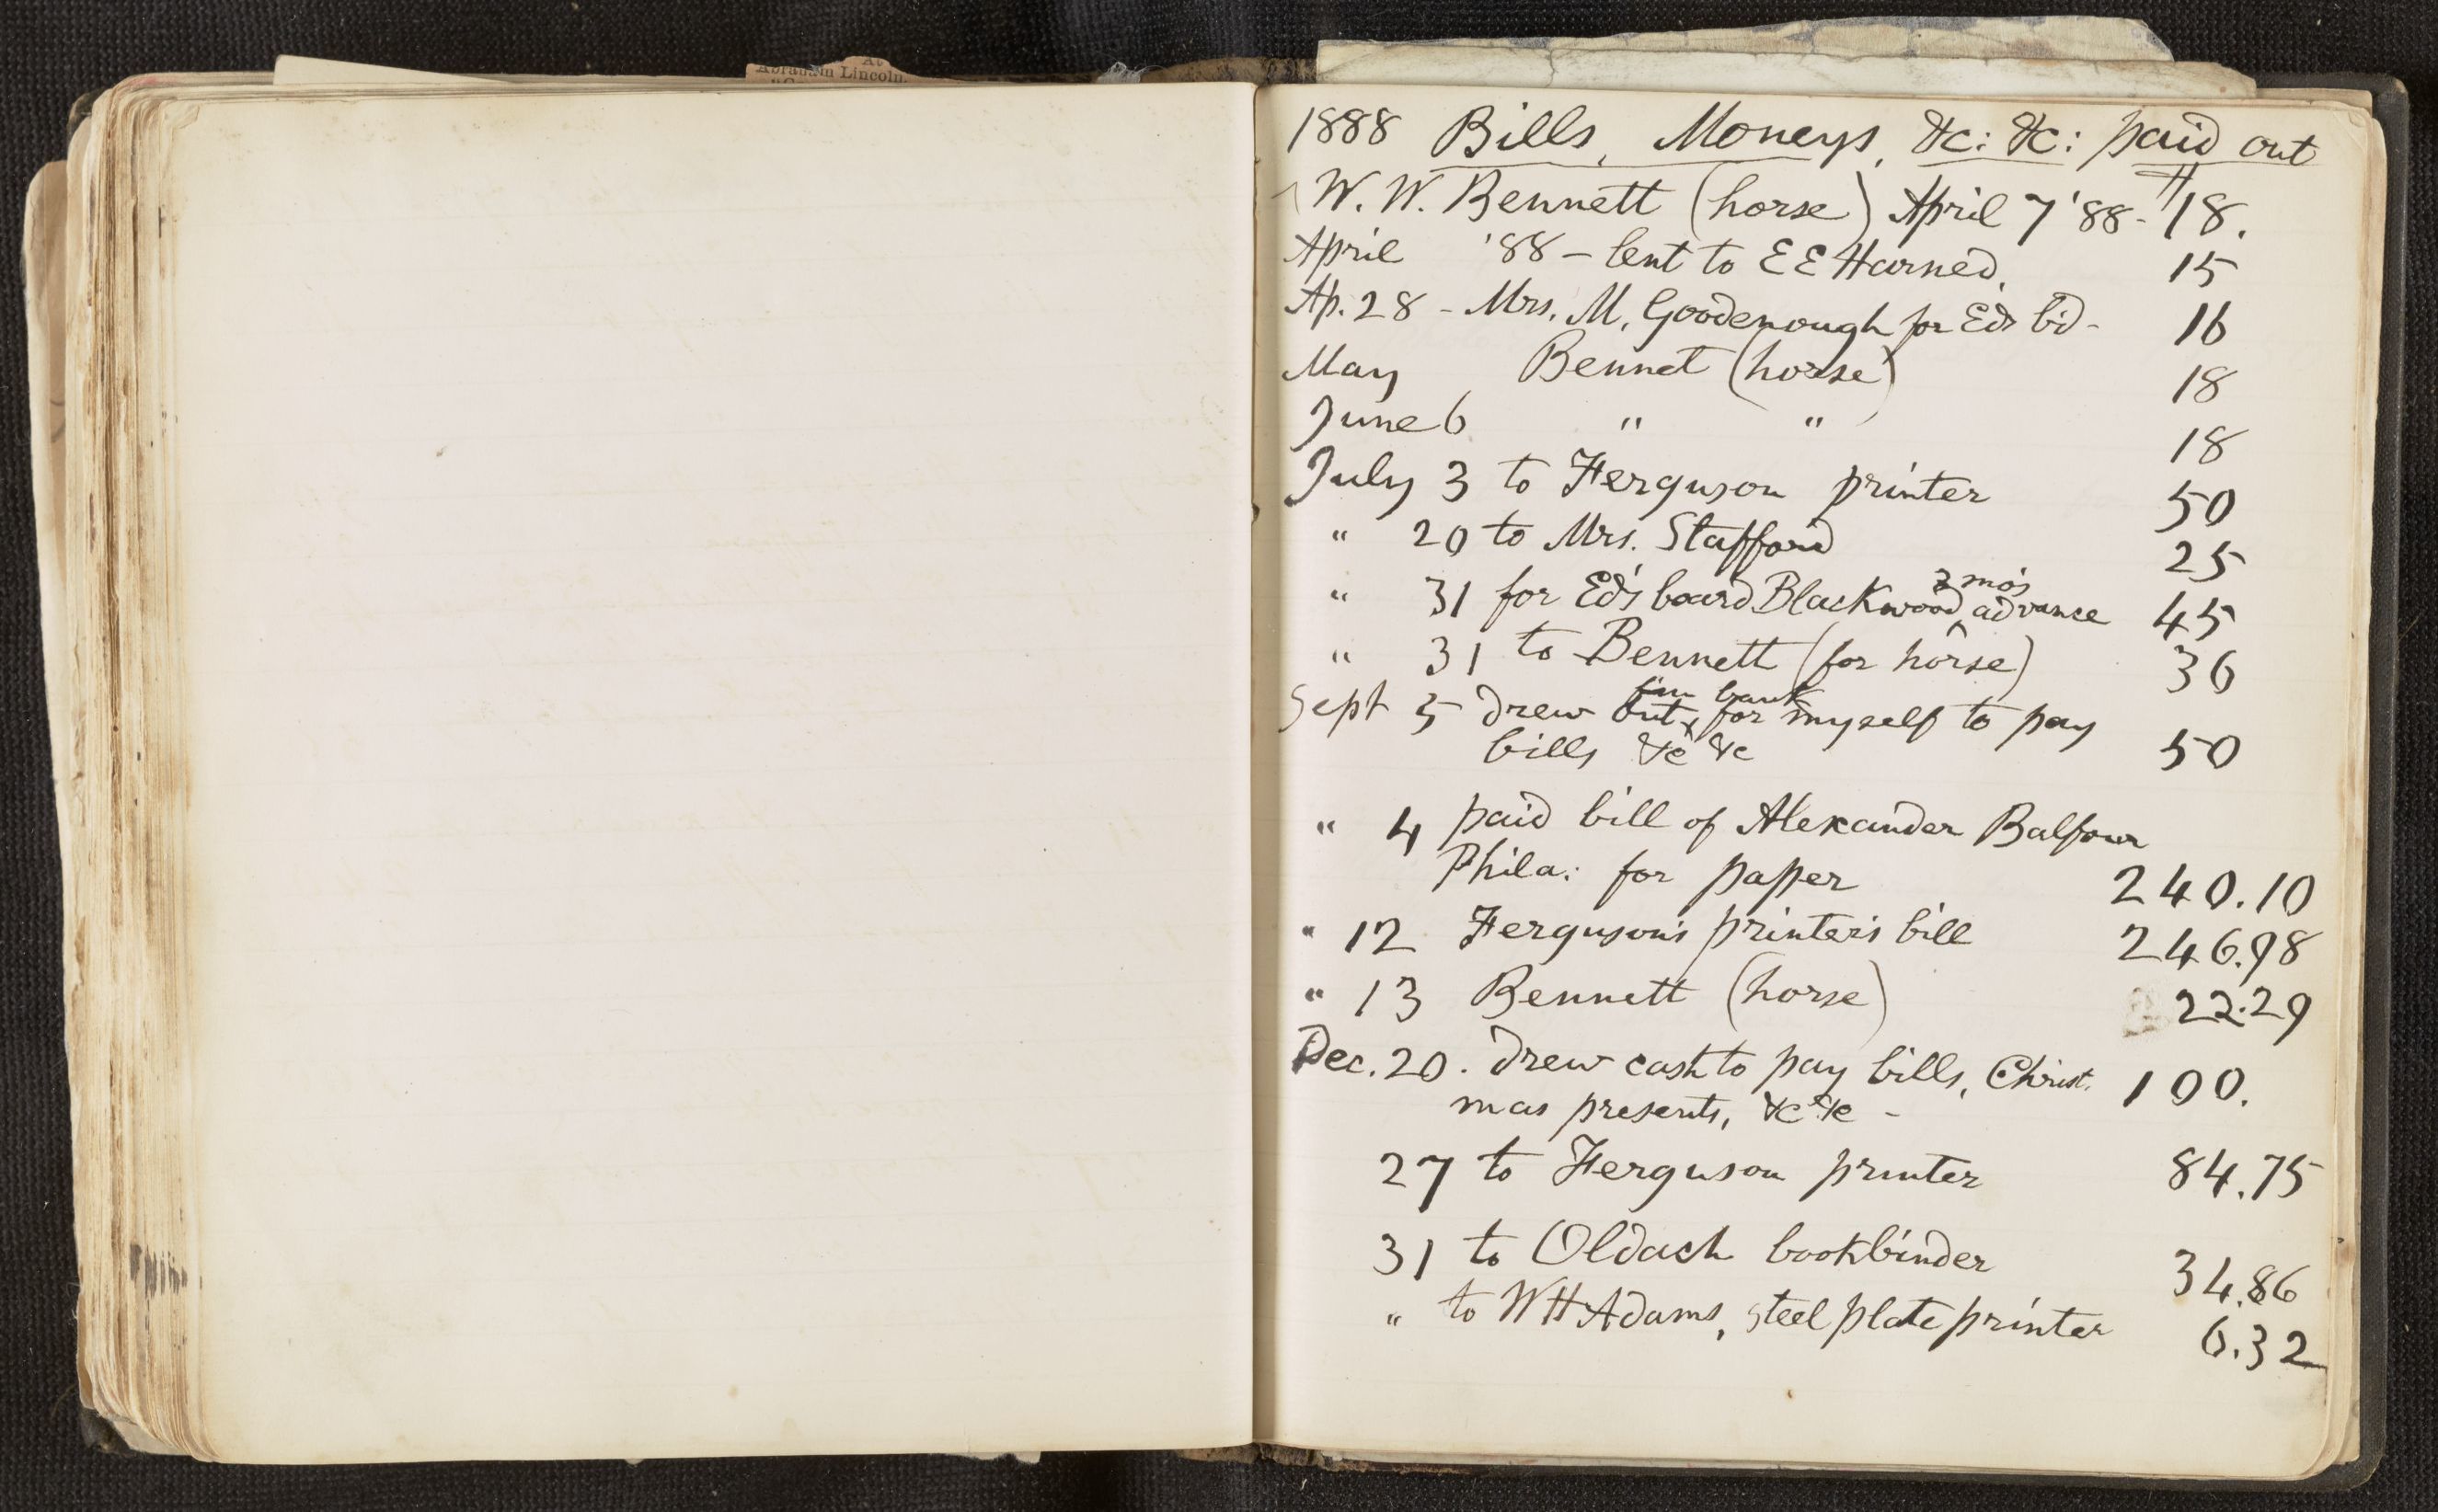 At
Abraham Lincoln.
1888 Bills, Moneys, &c: &c: paid out
W. W. Bennett (horse) April 7 '88 - $18.
April '88 – lent to E E Harned, 15
Ap. 28 - Mrs. M. Goodenough for Eds bd - 16
May Bennet (horse) 18
June 6 " " 18
July 3 to Ferguson printer 50
" 20 to Mrs. Stafford 25
3 mo's
" 31 for Ed's board Blackwood ^ advance 45
" 31 to Bennett (for horse) 36
f'm bank
Sept 5 drew out ^ for myself to pay
bills &c &c 50
" 4 paid bill of Alexander Balfour
Phila: for paper 240.10
" 12 Ferguson's printer's bill 246.98
" 13 Bennett (horse) 22.29
Dec. 20. drew cash to pay bills, Christ. 100.
mas presents, &c &c -
27 to Ferguson printer 84.75
31 to Oldach bookbinder 34.86
" to W H Adams, steel plate printer 6.32